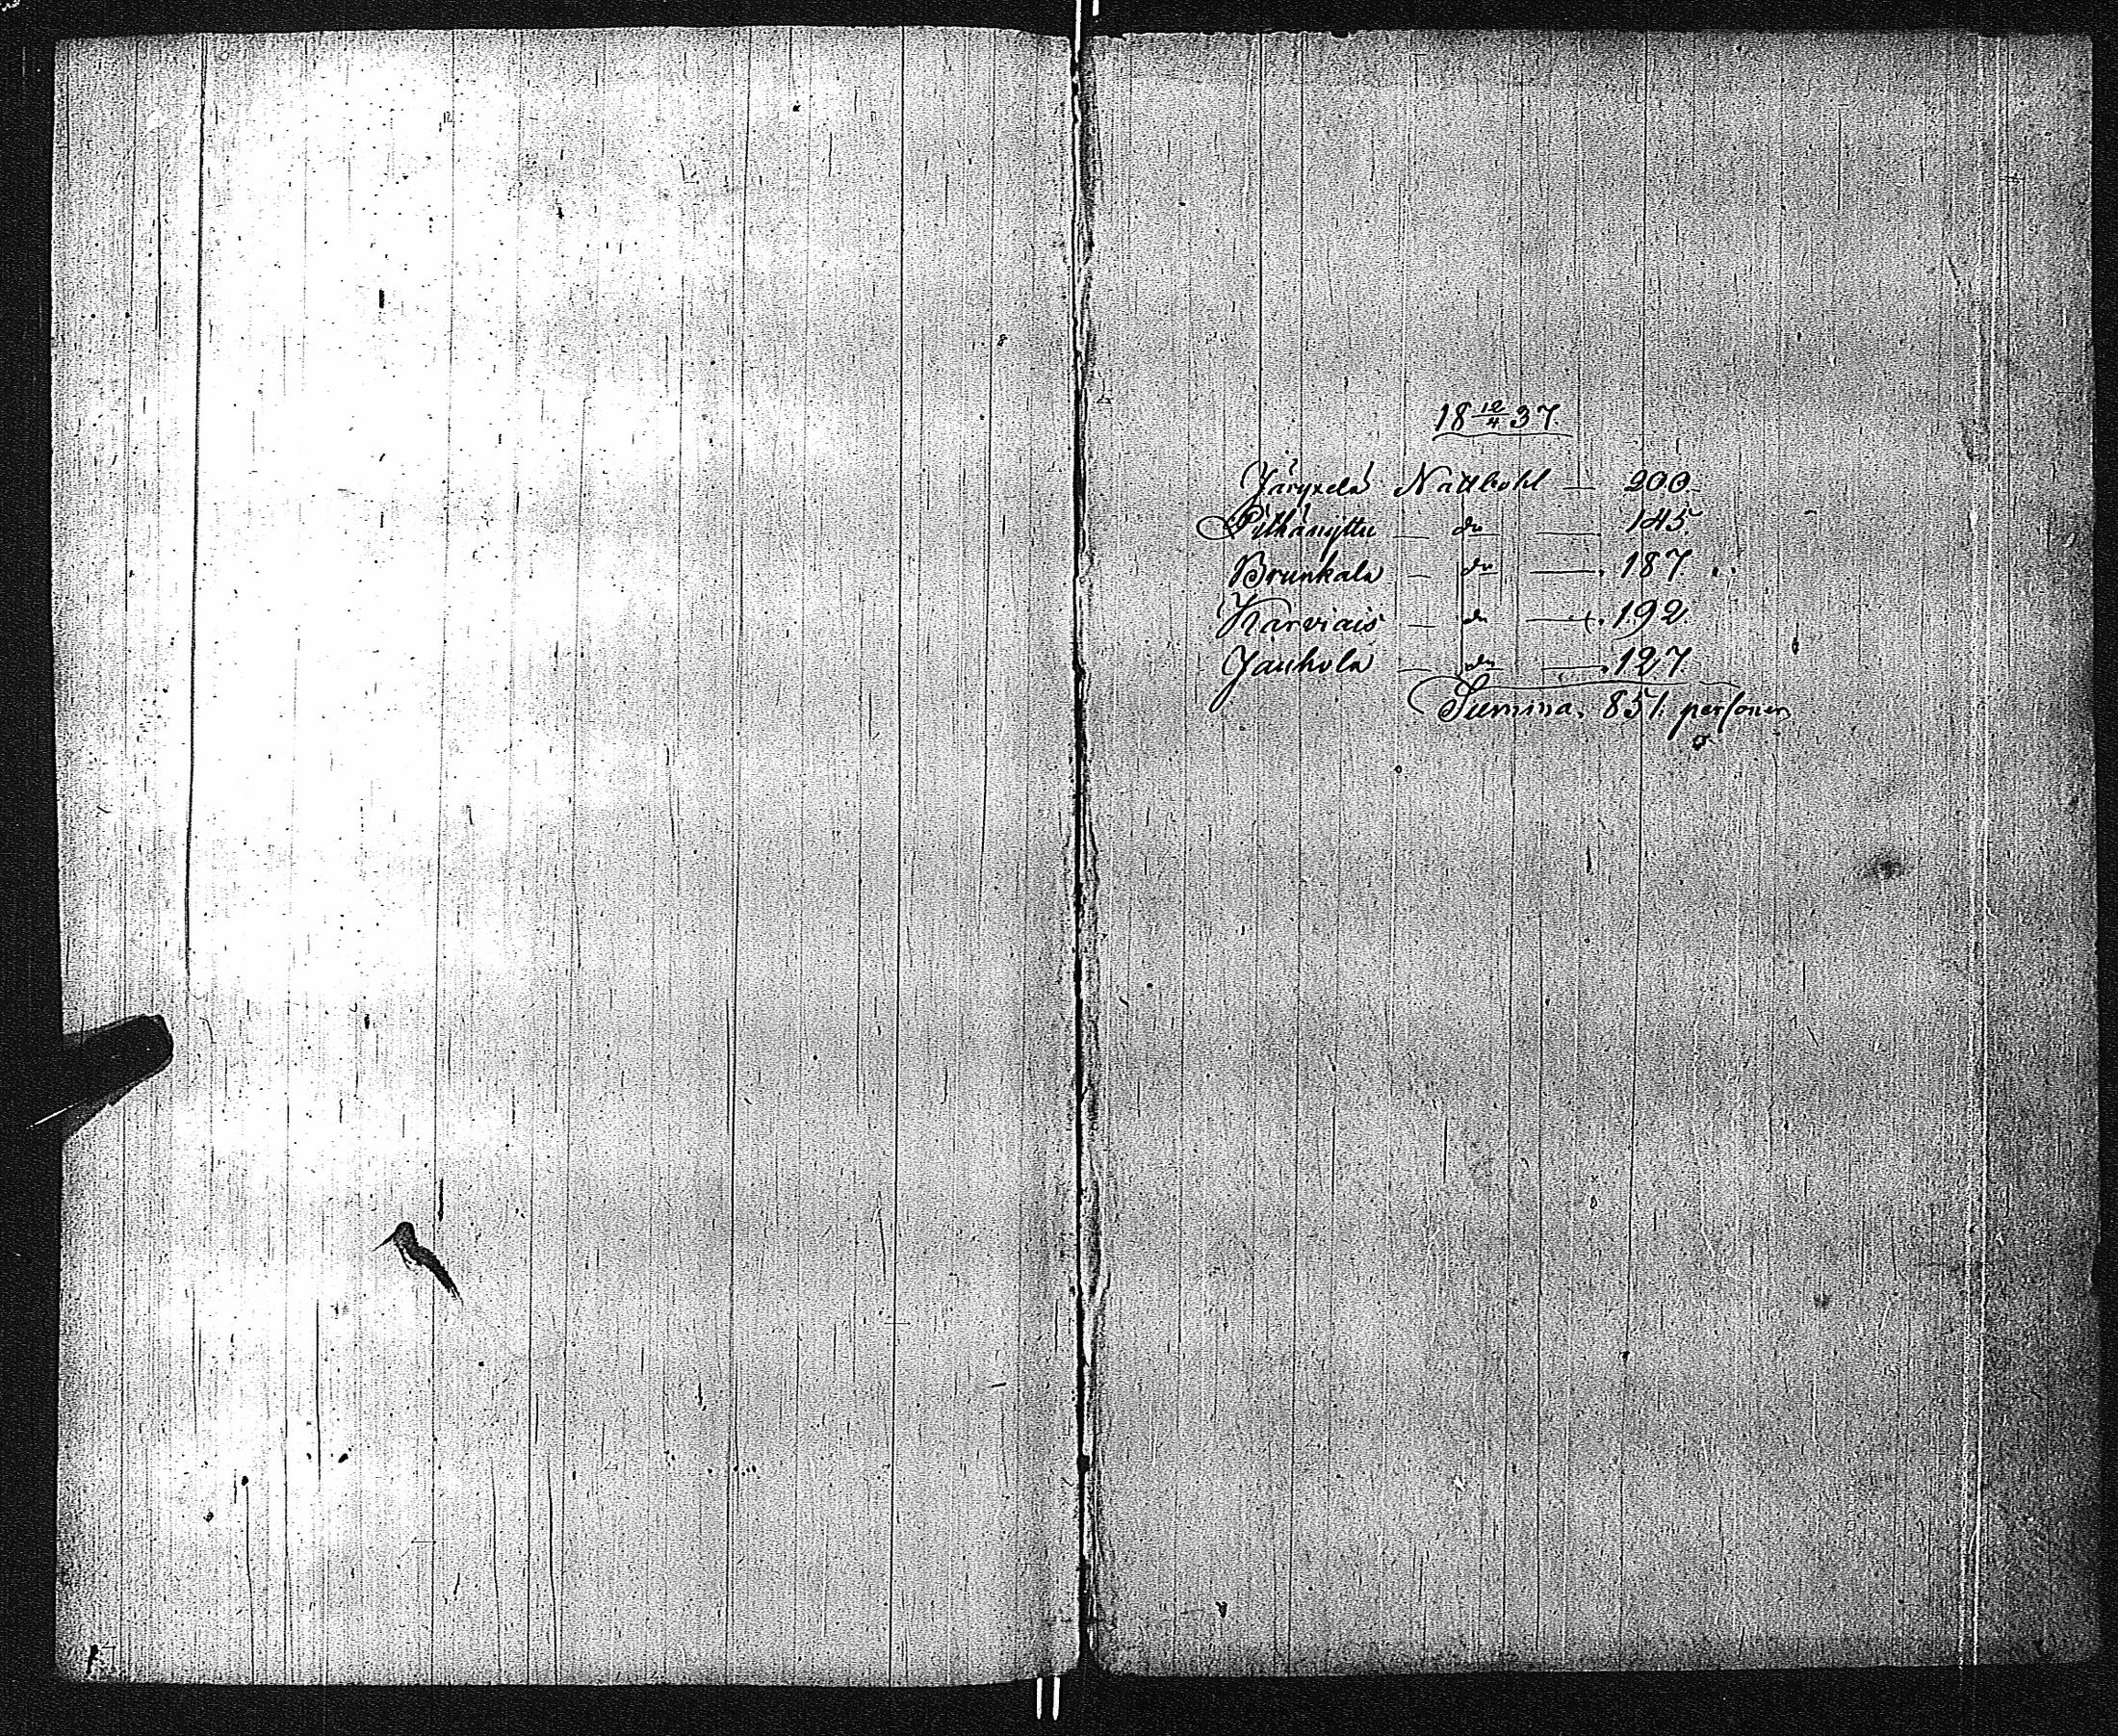 18 12/4 37.
Järyxelä Nattbohl — 200.
Pithäniyttu — do — 145.
Brunkala — do — 187.
Karviais — do — 192.
Jauhola — do — 127.
Summa. 851. personer